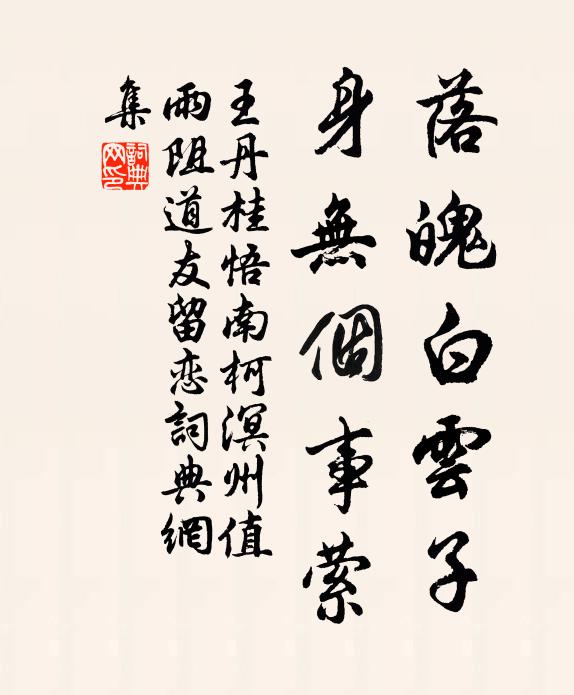 落魄白雲子
身無個事縈
王丹桂悟南柯溟州值
雨阻道友留恋詞典網
集
詞典
网印